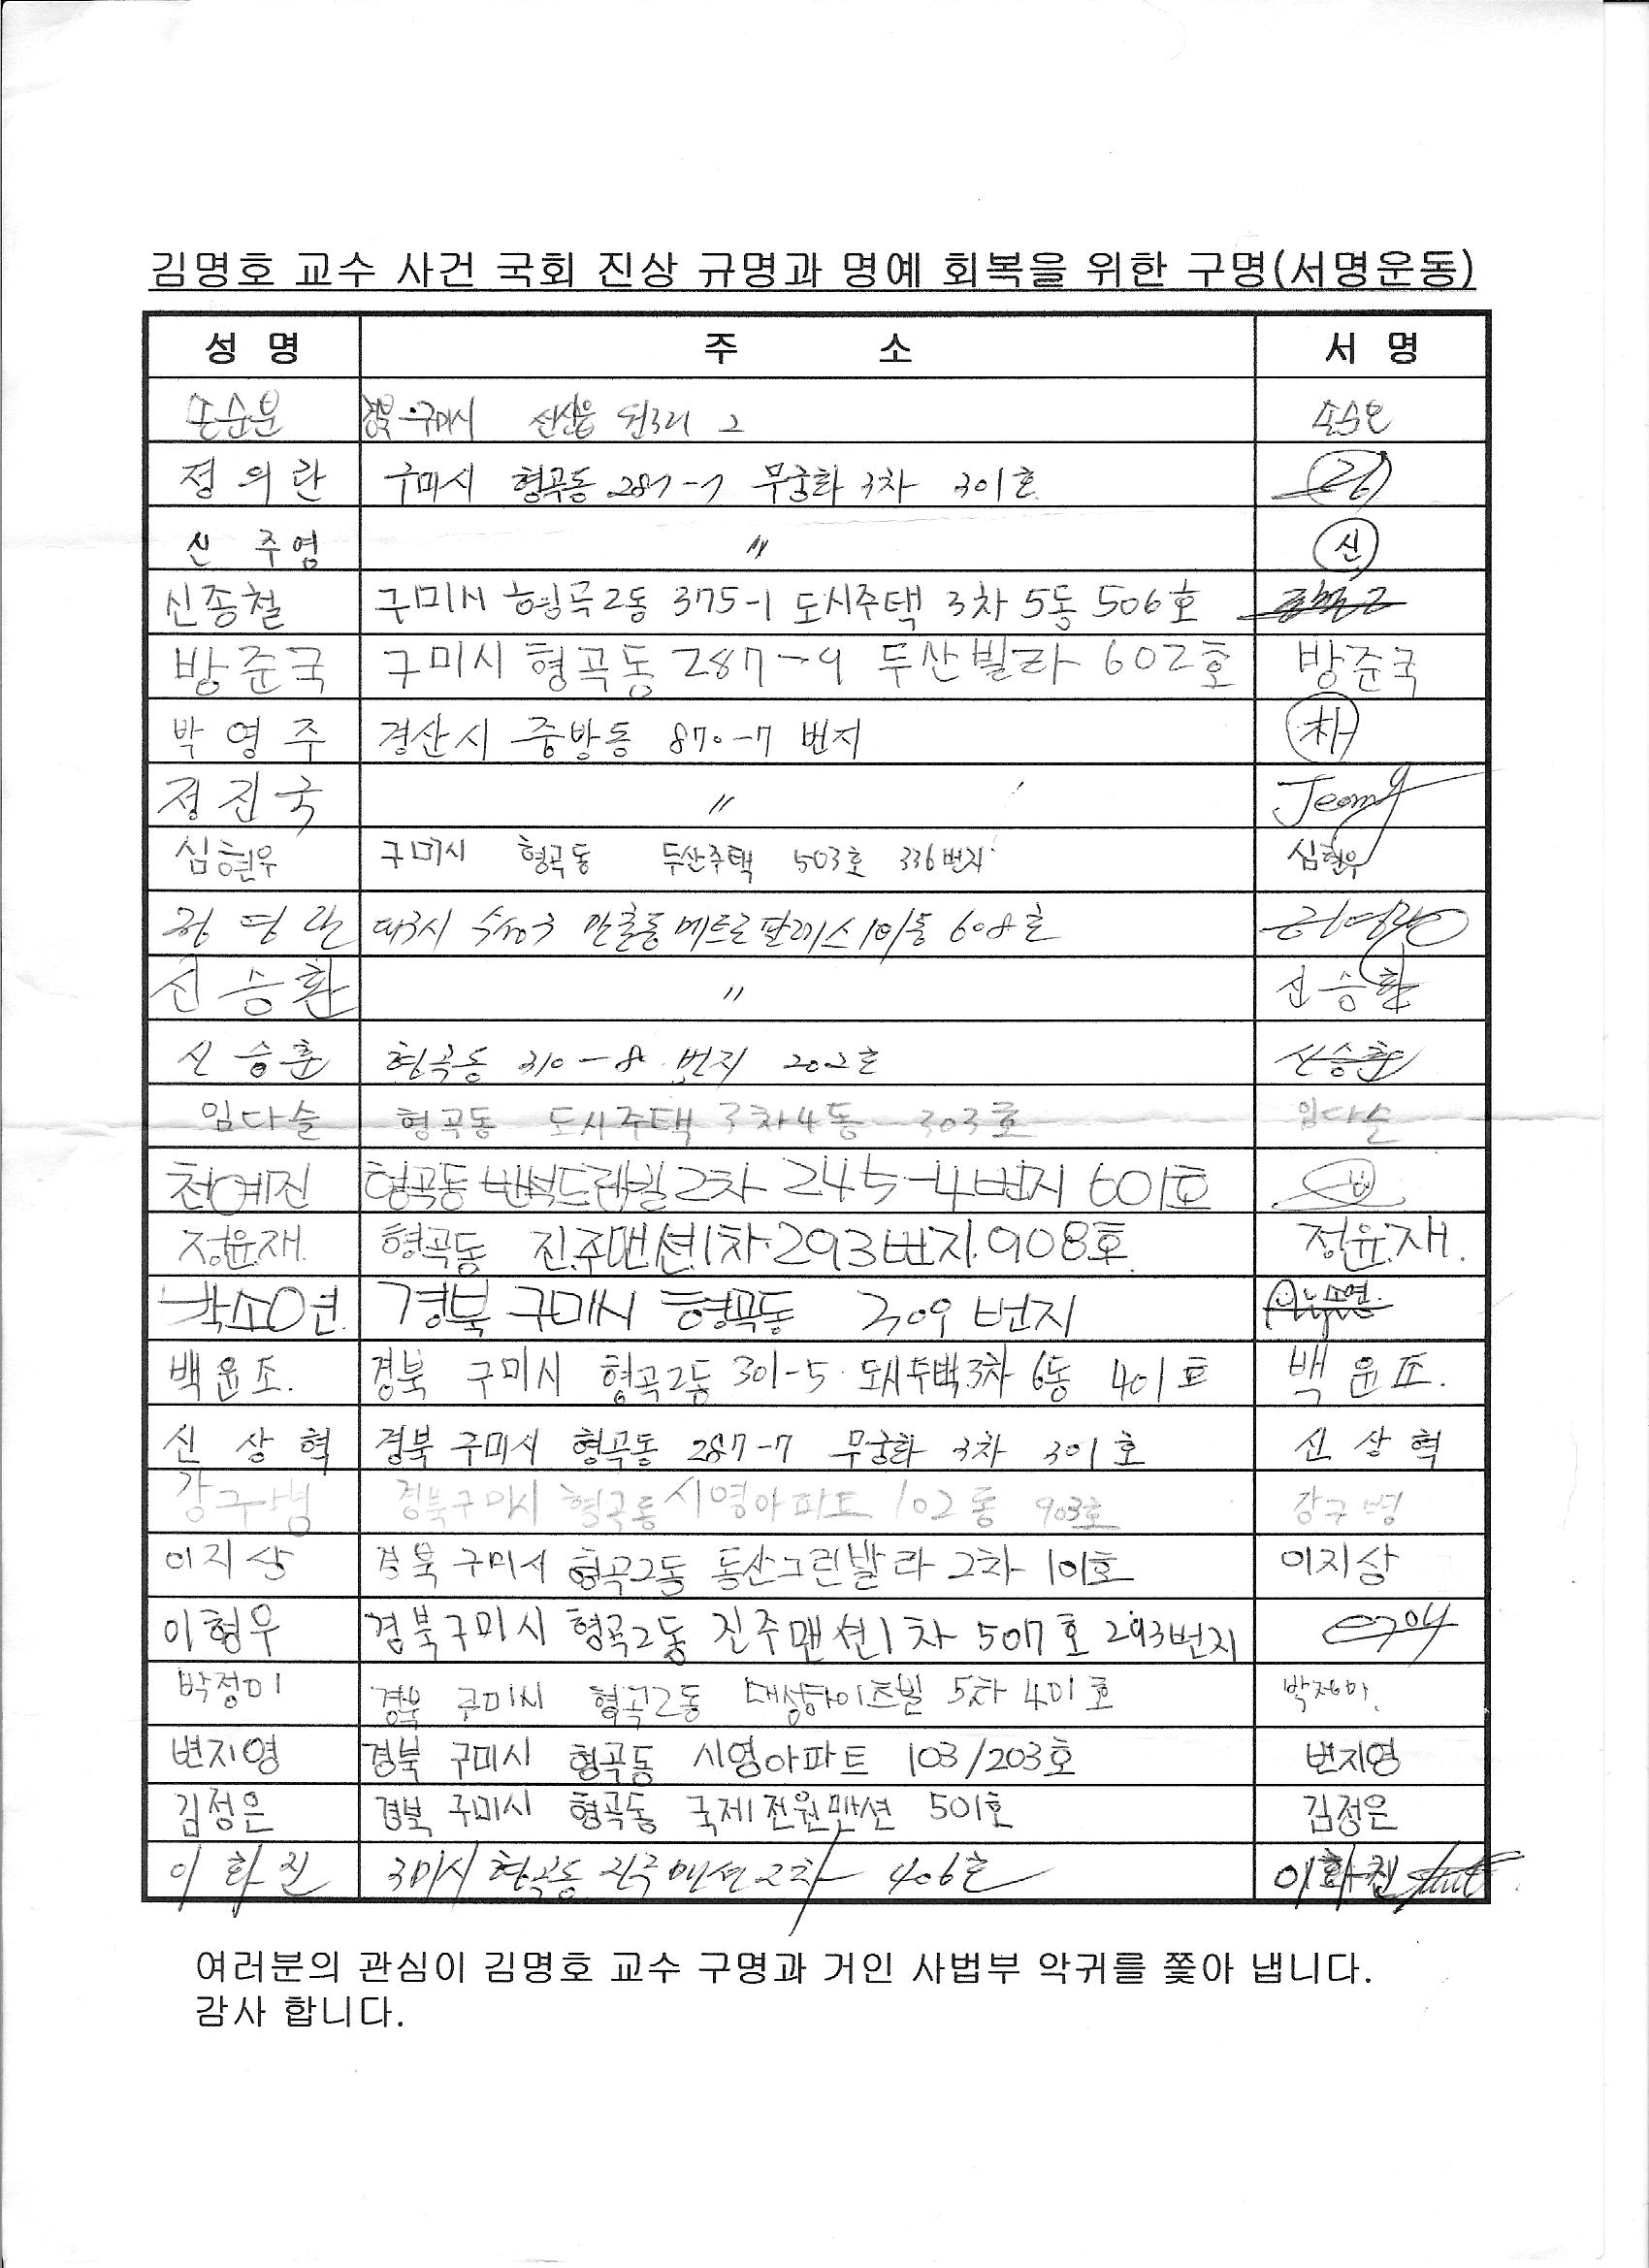 김명호 교수 사건 국회 진상 규명과 명예 회복을 위한 구명(서명운동)
성 명 주 소 서 명
손순분 경북 구미시 선산읍 원3리 2
정의란 구미시 형곡동 287-7 무궁화 3차 301호
신주영 〃 신
신종철 구미시 형곡2동 375-1 도시주택 3차 5동 506호
방준국 구미시 형곡동 287-9 두산빌라 602호 방준국
박영주 경산시 중방동 870-7 번지
정진국 〃 Jeong
심현우 구미시 형곡동 두산주택 503호 336번지 심현우
정영란 대구시 수성구 만촌동 메트로팔레스 101동 608호
신승환 〃 신승환
신승훈 형곡동 310-8 번지 202호 신승훈
임다슬 형곡동 도시주택 3차 4동 303호 임다슬
천예진 형곡동 반석드림빌 2차 245-4번지 601호
정윤재. 형곡동 진주맨션1차 293번지 908호. 정윤재.
박소연. 경북 구미시 형곡동 309 번지
백윤조. 경북 구미시 형곡2동 301-5 도시주택 3차 6동 401호 백윤조.
신상혁 경북 구미시 형곡동 287-7 무궁화 3차 301호 신상혁
강구병 경북 구미시 형곡동 시영아파트 102동 903호 강구병
이지상 경북 구미시 형곡2동 동산그린빌라 2차 101호 이지상
이형우 경북 구미시 형곡2동 진주맨션1차 507호 293번지
박정미 경북 구미시 형곡2동 대성하이츠빌 5차 401호 박정미.
변지영 경북 구미시 형곡동 시영아파트 103/203호 변지영
김정은 경북 구미시 형곡동 국제전원맨션 501호 김정은
이화진 구미시 형곡동 진주맨션2차 406호 이화진
여러분의 관심이 김명호 교수 구명과 거인 사법부 악귀를 쫓아 냅니다.
감사 합니다.